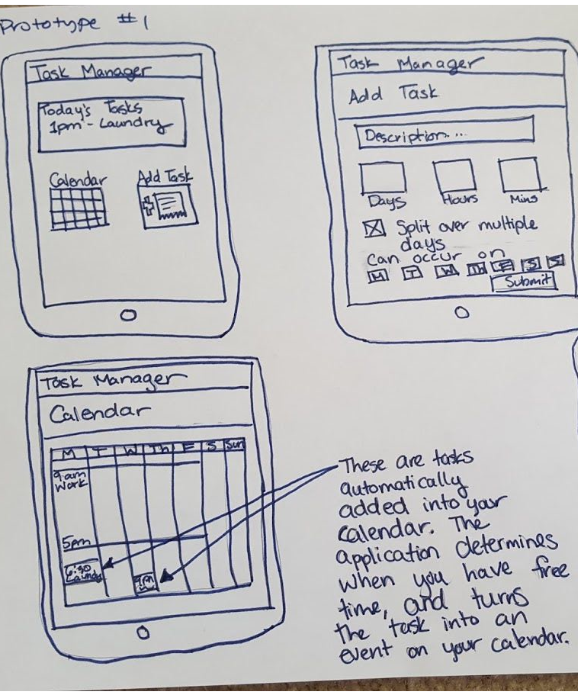 Prototype #1
Task Manager
Today's Tasks
1pm - Laundry
Calendar
Add Task
Task Manager
Add Task
Description....
Days
Hours
Mins
Split over multiple
days
Can occur on
M T W Th F S S
Submit
Task Manager
Calendar
M T W Th F S Sun
9am
Work
5pm
6:30
Laundry
These are tasks
automatically
added into your
Calendar. The
application determines
when you have free
time, and turns
the task into an
event on your calendar.